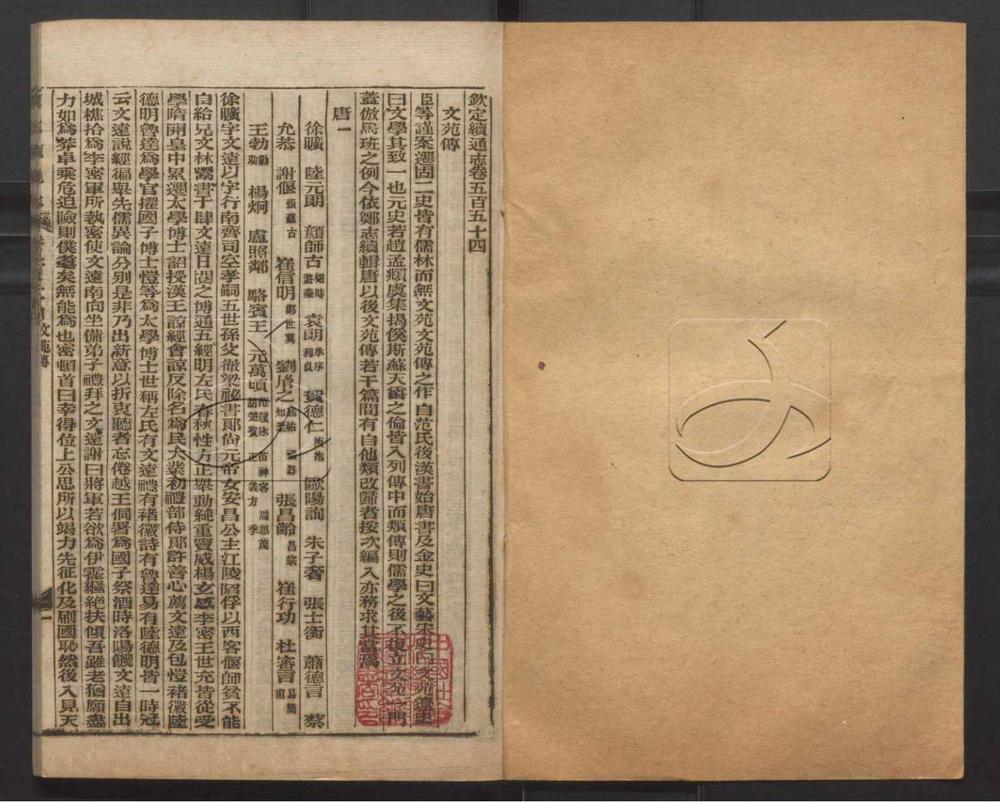 欽定續通志卷五百五十四
文苑傳
臣等謹案遷固二史皆有儒林而無文苑文苑傳之作自范氏後漢書始唐書及金史曰文藝宋史曰文苑遼史
曰文學其致一也元史若趙孟頫虞集揭傒斯蘇天爵之倫皆入列傳中而類傳則儒學之後不復立文苑一門
蓋倣馬班之例今依鄭志續輯唐以後文苑傳若干篇間有自他類改歸者按次編入亦務求其當焉
唐一
徐曠 陸元朗 顏師古 相時 游秦 袁朗 承序 利貞 賀德仁 歐陽詢 朱子奢 張士衡 蕭德言 蔡
允恭 謝偃 張蘊古 崔信明 鄭世翼 劉胤之 知柔 張昌齡 昌宗 崔行功 杜審言 易簡 甫
王勃 勮 助 楊炯 盧照鄰 駱賓王 元萬頃 范履冰 苗神客 周思茂 胡楚賓 正 義方 季
徐曠字文遠以字行南齊司空孝嗣五世孫父徹梁祕書郎尚元帝女安昌公主江陵陷俘以西客偃師貧不能
自給兄文林鬻書于肆文遠日閱之博通五經明左氏春秋性方正舉動純重竇威楊玄感李密王世充皆從受
學隋開皇中累遷太學博士詔授漢王諒經會諒反除名為民大業初禮部侍郎許善心薦文遠及包愷褚徽陸
德明魯達為學官擢國子博士愷等為太學博士世稱左氏有文遠禮有褚徽詩有魯達易有陸德明皆一時冠
云文遠說經徧舉先儒異論分別是非乃出新意以折衷聽者忘倦越王侗署為國子祭酒時洛陽饑文遠自出
城樵拾為李密軍所執密使文遠南向坐備弟子禮拜之文遠謝曰將軍若欲為伊霍繼絕扶傾吾雖老猶願盡
力如為莽卓乘危迫險則僕耄矣無能為也密頓首曰幸得位上公思所以竭力先征化及刷國恥然後入見天